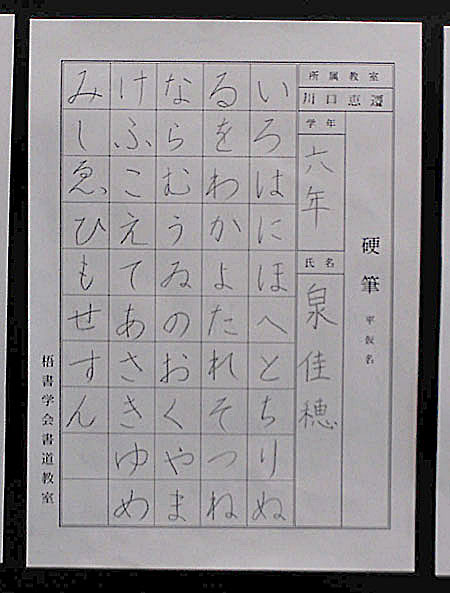 硬筆 平仮名
所属教室
川口恵遷
学年
六年
氏名
泉佳穂
いろはにほへとちりぬ
るをわかよたれそつね
ならむうゐのおくやま
けふこえてあさきゆめ
みしゑひもせすん
梧書学会書道教室